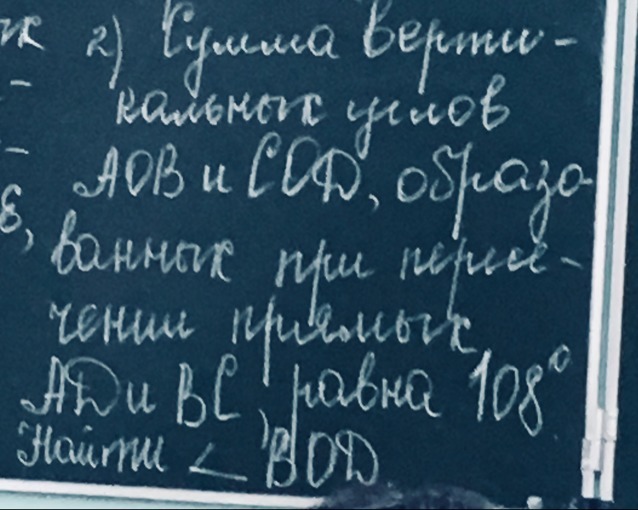 2) Сумма верти-
кальных углов
АОВ и СОD, образо-
ванных при пересе-
чении прямых
АD и ВС, равна 108°
Найти < ВОD